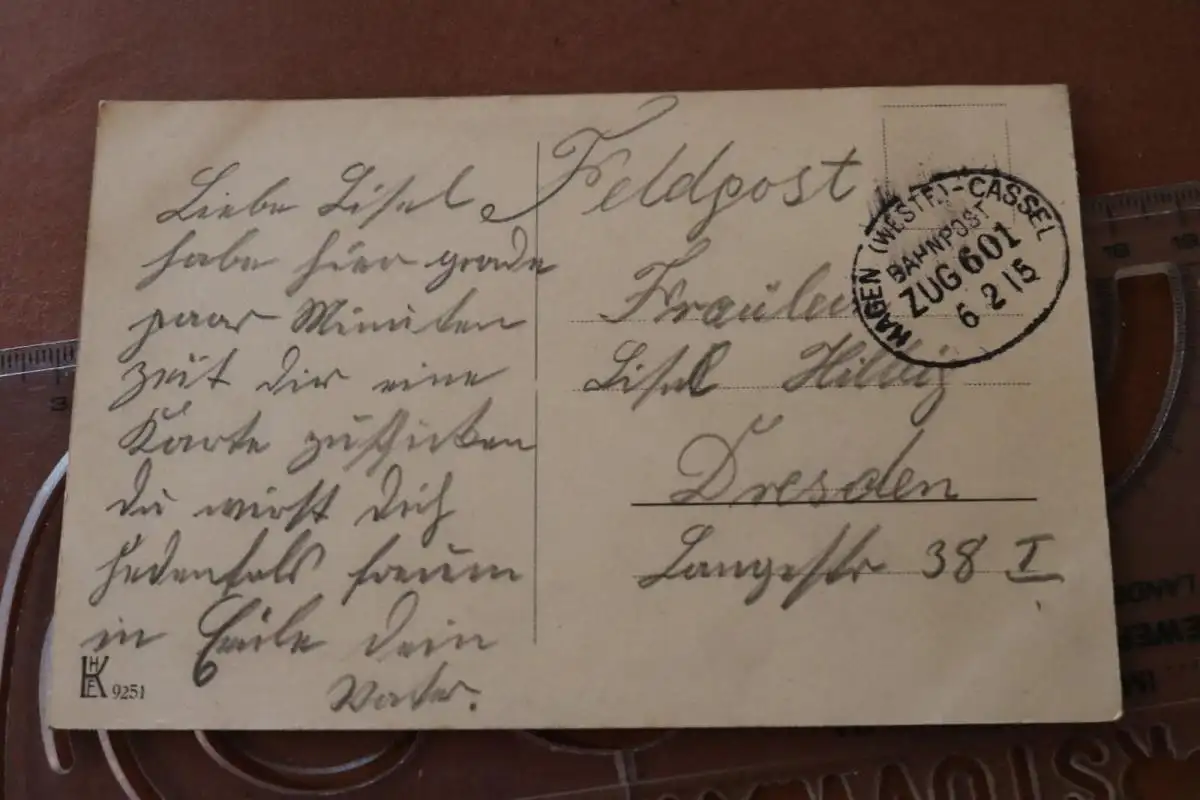 Liebe Lisel
habe hier grade
paar Minuten
Zeit dir eine
Karte zuschicken
du wirst dich
jedenfals freuen
in Eile dein
Vater.
HKE 9251
Feldpost
HAGEN (WESTF.)-CASSEL
BAHNPOST
ZUG 601
6 2 15
Fräulein
Lisel
Dresden
Langestr 38 I